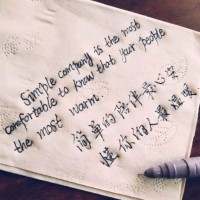 Simple company is the most
comfortable to know that your people
the most warm.
简单的陪伴最心安
懂你的人最温暖